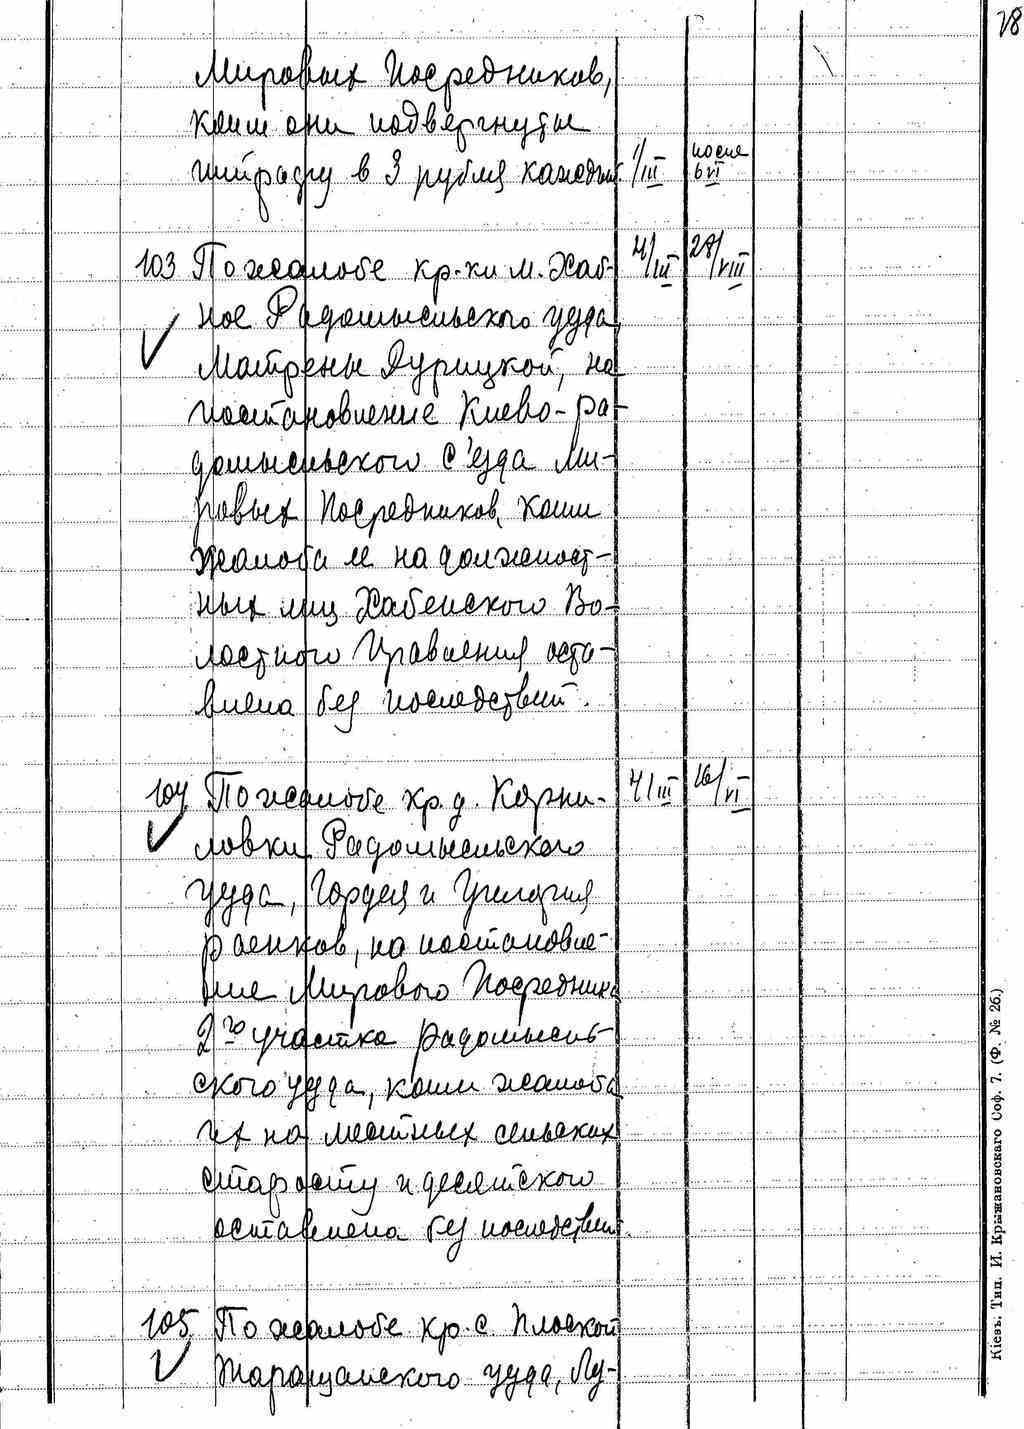 78
Мировых Посредников,
коим они подвергнуты
штрафу в 3 рубля каждый. 1/III после 6 VI
103 По жалобе кр-ки м. Хаб- 4/III 28/VIII
ное Радомысльского уезда,
Матрены Дурицкой, на
постановление Киево-ра-
домысльского с'езда Ми-
ровых Посредников, коим
жалоба ее на должност-
ных лиц Хабенского Во-
лостного Правления оста-
влена без последствий.
104 По жалобе кр. д. Корни- 4/III 16/VI
ловки Радомысльского
уезда, Гордея и
Раенков, на постановле-
ние Мирового Посредника
2го участка Радомысль-
ского уезда, коим жалоба
их на местных сельских
старосту и десятского
оставлена без последствий.
105 По жалобе кр. с. Плоской
Таращанского уезда, Лу-
Кіевъ. Тип. И. Крыжановскаго Соф. 7. (Ф. № 26.)